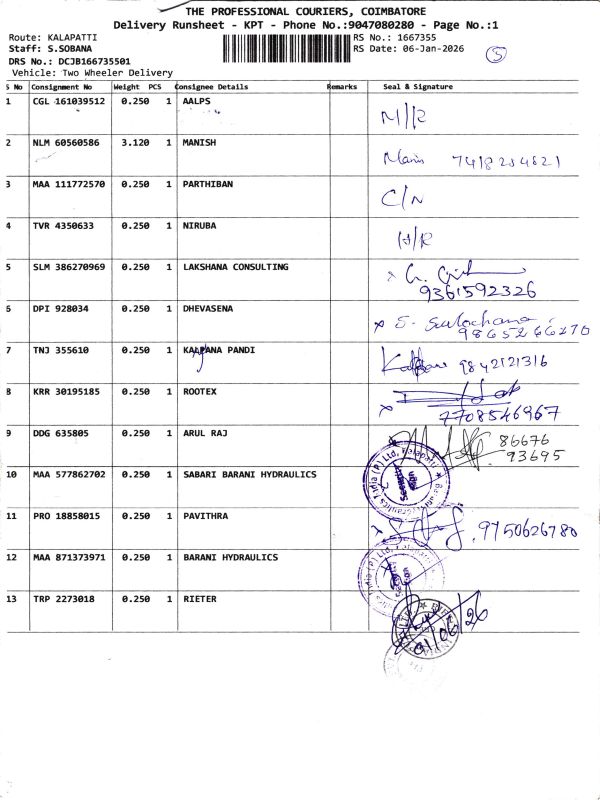 THE PROFESSIONAL COURIERS, COIMBATORE
Delivery Runsheet - KPT - Phone No.:9047080280 - Page No.:1
Route: KALAPATTI RS No.: 1667355
Staff: S.SOBANA RS Date: 06-Jan-2026 5
DRS No.: DCJB166735501
Vehicle: Two Wheeler Delivery
S No Consignment No Weight PCS Consignee Details Remarks Seal & Signature
1 CGL 161039512 0.250 1 AALPS
2 NLM 60560586 3.120 1 MANISH 7418234621
3 MAA 111772570 0.250 1 PARTHIBAN C/N
4 TVR 4350633 0.250 1 NIRUBA
5 SLM 386270969 0.250 1 LAKSHANA CONSULTING
9361592326
6 DPI 928034 0.250 1 DHEVASENA S. Sulochana
9865266270
7 TNJ 355610 0.250 1 KALPANA PANDI 9842121316
8 KRR 30195185 0.250 1 ROOTEX
7708546967
9 DDG 635805 0.250 1 ARUL RAJ 86676
93695
10 MAA 577862702 0.250 1 SABARI BARANI HYDRAULICS
11 PRO 18858015 0.250 1 PAVITHRA 9750626780
12 MAA 871373971 0.250 1 BARANI HYDRAULICS
13 TRP 2273018 0.250 1 RIETER
01/06/26